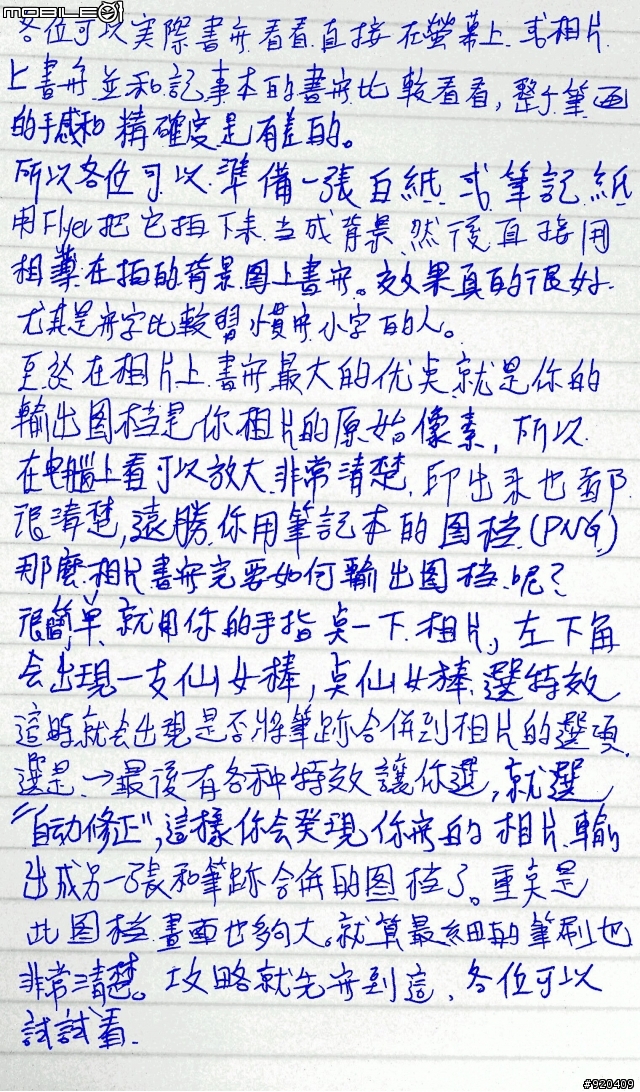 mobile01
各位可以實際書寫看看.直接在螢幕上.或相片.
上書寫.並和記事本的書寫比較看看,整个筆画
的手感和精確度是有差的。
所以各位可以.準備一張白紙.或筆記紙
用Flyer把它拍下来.当成背景.然後直接用
相薄在拍的背景图上書寫。效果真的很好.
尤其是寫字比較習慣寫小字的人。
至於在相片上.書寫最大的优点.就是你的
輸出图档是你相片的原始像素,所以.
在电腦上看可以放大.非常清楚,印出来也都.
很清楚,遠勝你用筆記本的图档.(PNG)
那麼.相片書寫完要如何輸出图档.呢?
很簡单.就用你的手指点一下.相片,左下角
会出現一支仙女棒,点仙女棒.選特效
這時就会出現是否將筆跡合併到相片的選项.
選是.→最後有各种特效讓你選,就選
"自动修正",這樣你会発現你寫的相片.輸
出成另一張和筆跡合併的图档了。重点是
此图档.畫面也夠大。就算最細的筆刷也
非常清楚。攻略就先寫到這.各位可以
試試看.
#920409